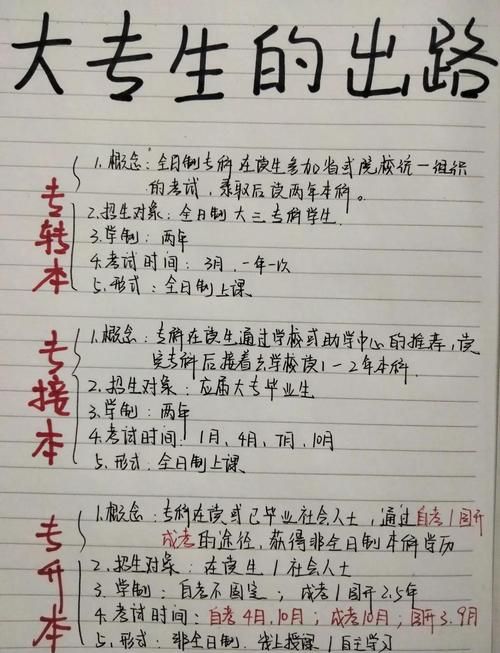 大专生的出路
专转本
1.概念：全日制专科在读生参加省或院校统一组织
的考试，录取后读两年本科。
2.招生对象：全日制大三专科学生.
3.学制：两年
4.考试时间：3月，一年一次
5.形式：全日制上课
专接本
1.概念：专科在读生通过学校或助学中心的推荐，读
完专科后接着去学校读1-2年本科.
2.招生对象：应届大专毕业生
3.学制：两年
4.考试时间：1月，4月，7月，10月
5.形式：全日制上课.
专升本
1.概念：专科在读或已毕业社会人士，通过自考/国开
成考的途径，获得非全日制本科学历
2.招生对象：在读生/社会人士
3.学制：自考不固定；成考/国开2.5年
4.考试时间：自考4月,10月；成考10月；国开3.9月
5.形式：非全日制.线上授课/自主学习